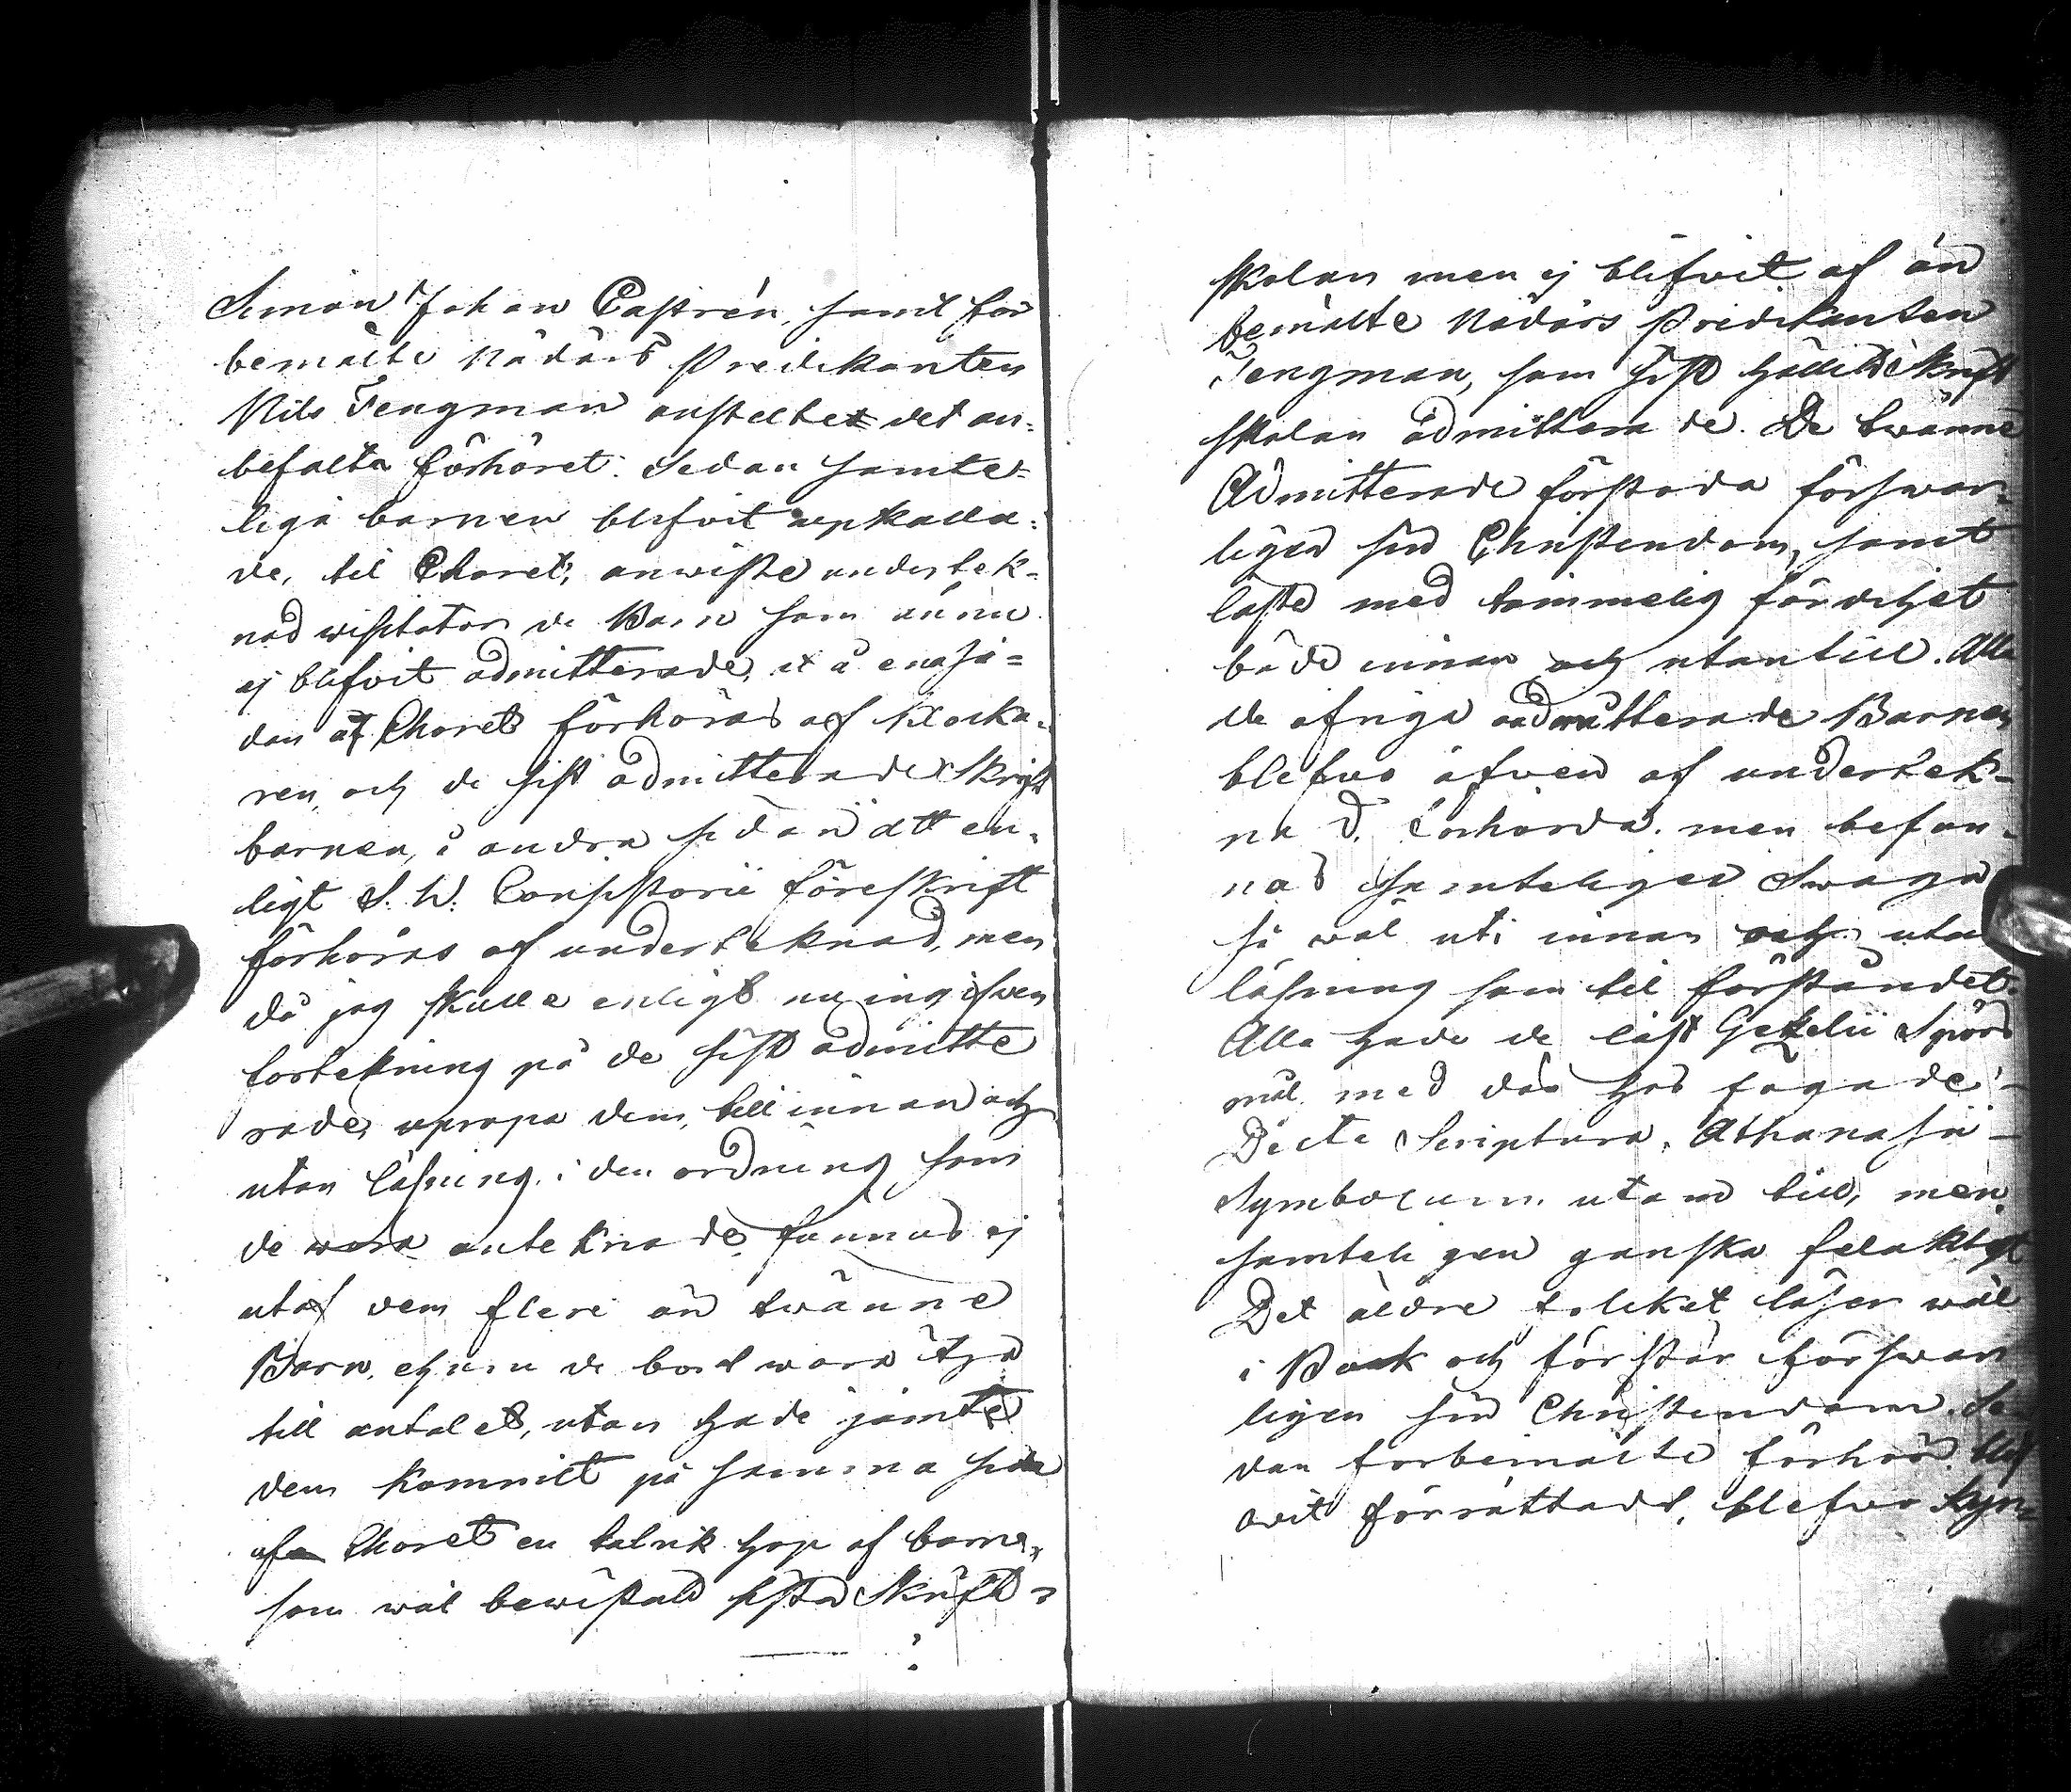 Simon Johan Castrén, samt för
bemälte Nådårs Predikanten
Nils Fengman anstellte det an-
befalta förhöret. Sedan samte-
liga barnen blifvit upkalla-
de, til Choret, anwiste undertek-
nad wisitator de Barn som ännu
ej blifvit admitterade, å ena si-
dan af Choret förhöras af Klocka-
ren, och de sist admitterade Skrift
barnen, å andra sidan att en-
ligt S. W. Consistorii föreskrift
förhöras af underteknad, men
då jag skulle enligt en ingifwen
förtekning på de sist admitte
rade, upropa dem, till innan och
utan läsning, i den ordning som
de wora anteknade, funnos ej
utaf dem flere än twänne
Barn, ehuru de bort wara åtta
till antalet, utan hade jämte
dem kommit på samma sida
af Choret en talrik hop af barn,
som wäl bewistat sista Skrift-
skolan men ej blifvit af än
bemälte Nådårs Predikanten
Fengman, som sist hållit Skrift
skolan admitterade. De twänne
Admitterade förstodo förswar-
ligen sin Christendom, samt
läste med tämmelig färdighet
både innan och utantill. Alla
de öfriga oadmitterade Barnen
blefwo äfwen af undertek-
nad, förhörda, men befun-
nos samteligen Swaga
så wäl uti innan och utan
läsning som til förståndet.
Alla hade de läst Gezelii Spörs
mål med där hos fogade
Dicta Scriptura, Athanasii
Symbolum utan till, men
samteligen ganska felaktigt
Det äldre folket läser wäl
i Bok och förstår förswar
ligen sin Christendom. Se-
dan förbemälte förhör blif
wit förrättadt, blefwo Syn-